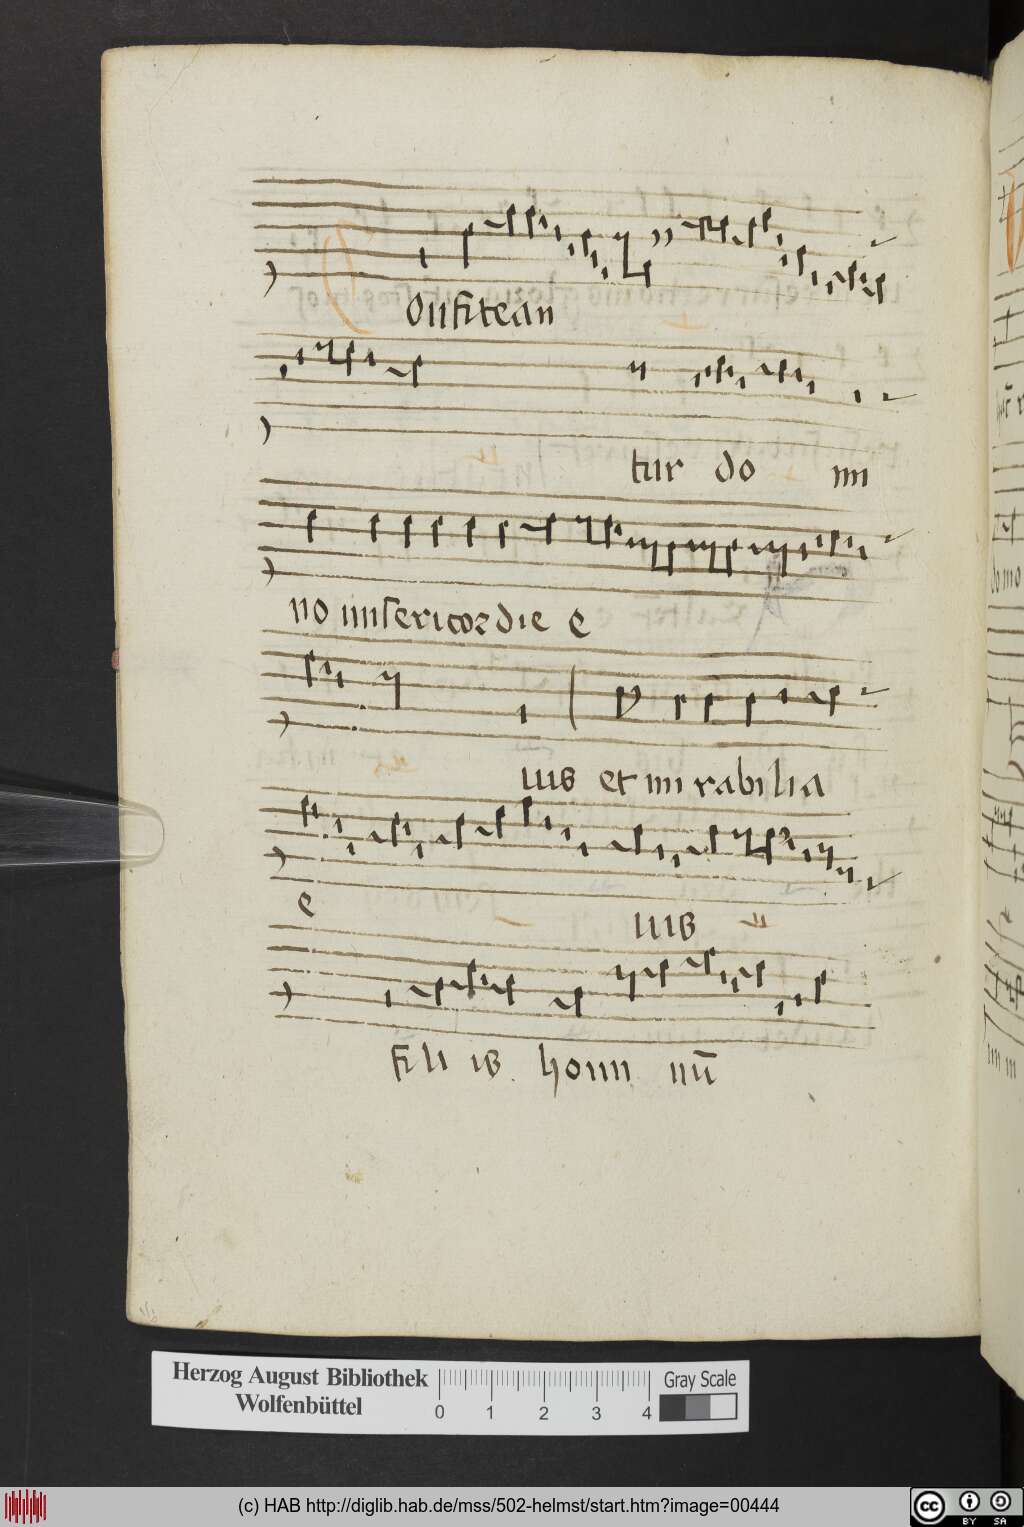 Onfitean
tur do mi
no misericordie e
ius et mi rabilia
e ius
fi li is homi nū
Herzog August Bibliothek
Wolfenbüttel
0 1 2 3 4
Gray Scale
(c) HAB http://diglib.hab.de/mss/502-helmst/start.htm?image=00444
cc BY SA